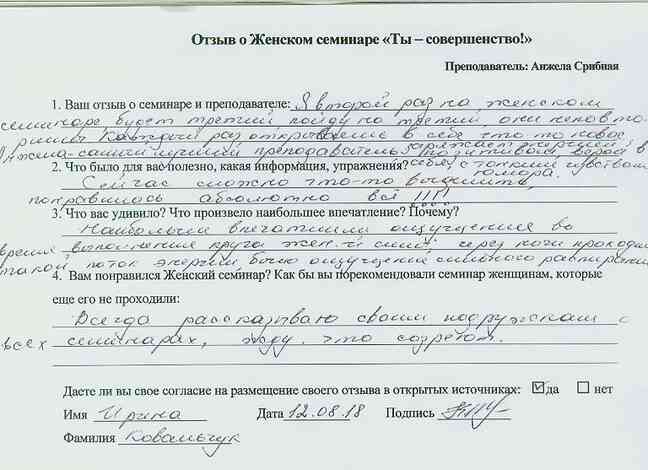 Отзыв о Женском семинаре «Ты – совершенство!»
Преподаватель: Анжела Срибная
1. Ваш отзыв о семинаре и преподавателе: Я второй раз на женском
семинаре будет третий пойду на третий они неповто-
римы каждый раз открываешь в себе что то новое,
Анжела-самый лучший преподаватель заряжает энергией,
2. Что было для вас полезно, какая информация, упражнения? с тонким чувством
юмора.
Сейчас сложно что-то выделить,
понравилось абсолютно всё !!!!
3. Что вас удивило? Что произвело наибольшее впечатление? Почему?
Наибольшее впечатление ощущение во
время выполнения круга жен-й силы, через ноги проходил
такой поток энергии было ощущение сильного распирания
4. Вам понравился Женский семинар? Как бы вы порекомендовали семинар женщинам, которые
еще его не проходили:
Всегда рассказываю своим подружкам о
всех семинарах, жду, что созреют.
Даете ли вы свое согласие на размещение своего отзыва в открытых источниках: да нет
Имя Ирина Дата 12.08.18 Подпись
Фамилия Ковальчук